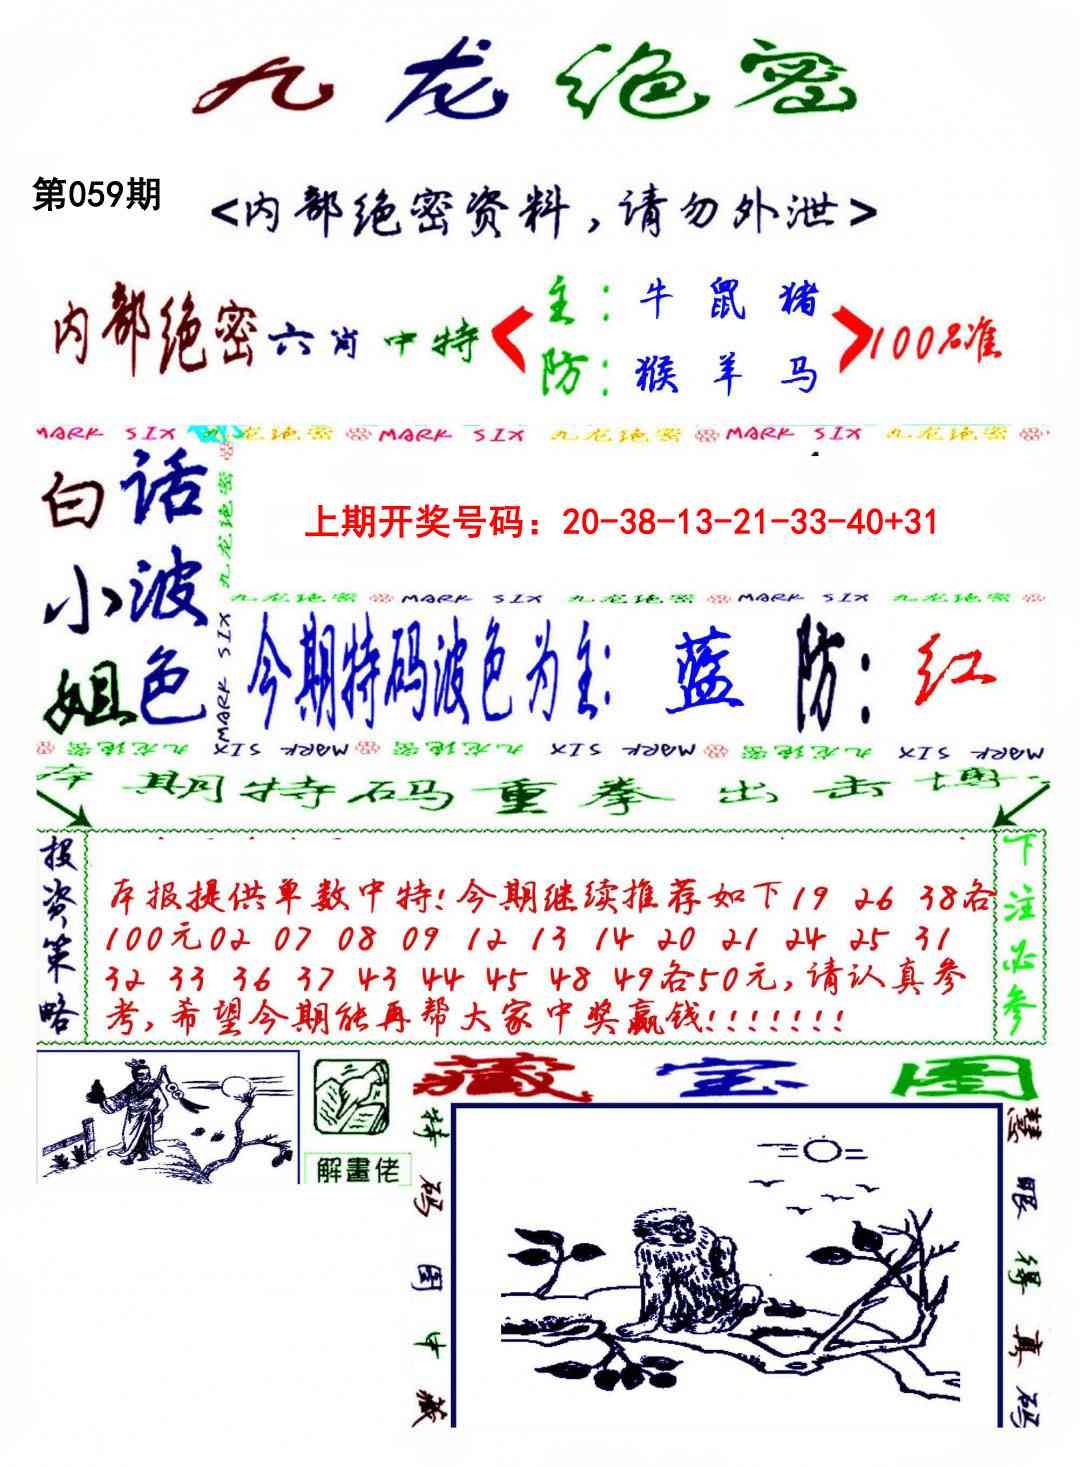 九龙绝密
第059期
<内部绝密资料,请勿外泄>
内部绝密六肖中特
主:牛 鼠 猪
防:猴 羊 马
100%准
MARK SIX 九龙绝密 MARK SIX 九龙绝密 MARK SIX 九龙绝密
白话
小波
姐色
九龙绝密
MARK SIX
上期开奖号码：20-38-13-21-33-40+31
九龙绝密 MARK SIX 九龙绝密 MARK SIX 九龙绝密
今期特码波色为主:蓝 防:红
九龙绝密 MARK SIX 九龙绝密 MARK SIX 九龙绝密 MARK SIX
本期特码重拳出击博
投资策略
本报提供单数中特!今期继续推荐如下19 26 38各
100元02 07 08 09 12 13 14 20 21 24 25 31
32 33 36 37 43 44 45 48 49各50元,请认真参
考,希望今期能再帮大家中奖赢钱!!!!!!!
下注必参
解畫佬
藏宝图
特码图中藏
慧眼得真码